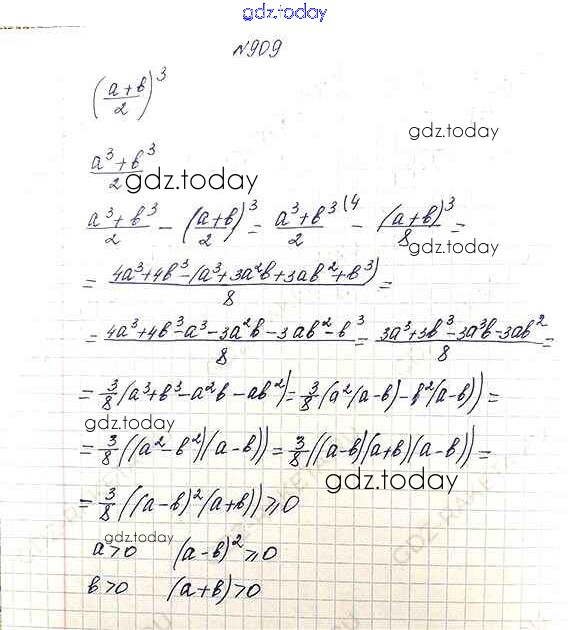 gdz.today
№909
((a+b)/2)³
gdz.today
(a³+b³)/2
gdz.today
(a³+b³)/2 - ((a+b)/2)³ = (a³+b³)/2 (4 - (a+b)³/8 =
gdz.today
= (4a³+4b³-(a³+3a²b+3ab²+b³))/8 =
= (4a³+4b³-a³-3a²b-3ab²-b³)/8 = (3a³+3b³-3a³b-3ab²)/8 =
= 3/8 (a³+b³-a²b-ab²) = 3/8 (a²(a-b)-b²(a-b)) =
gdz.today
= 3/8 ((a²-b²)(a-b)) = 3/8 ((a-b)(a+b)(a-b)) =
gdz.today
= 3/8 ((a-b)²(a+b)) ⩾ 0
gdz.today
a>0 (a-b)² ⩾ 0
b>0 (a+b)>0